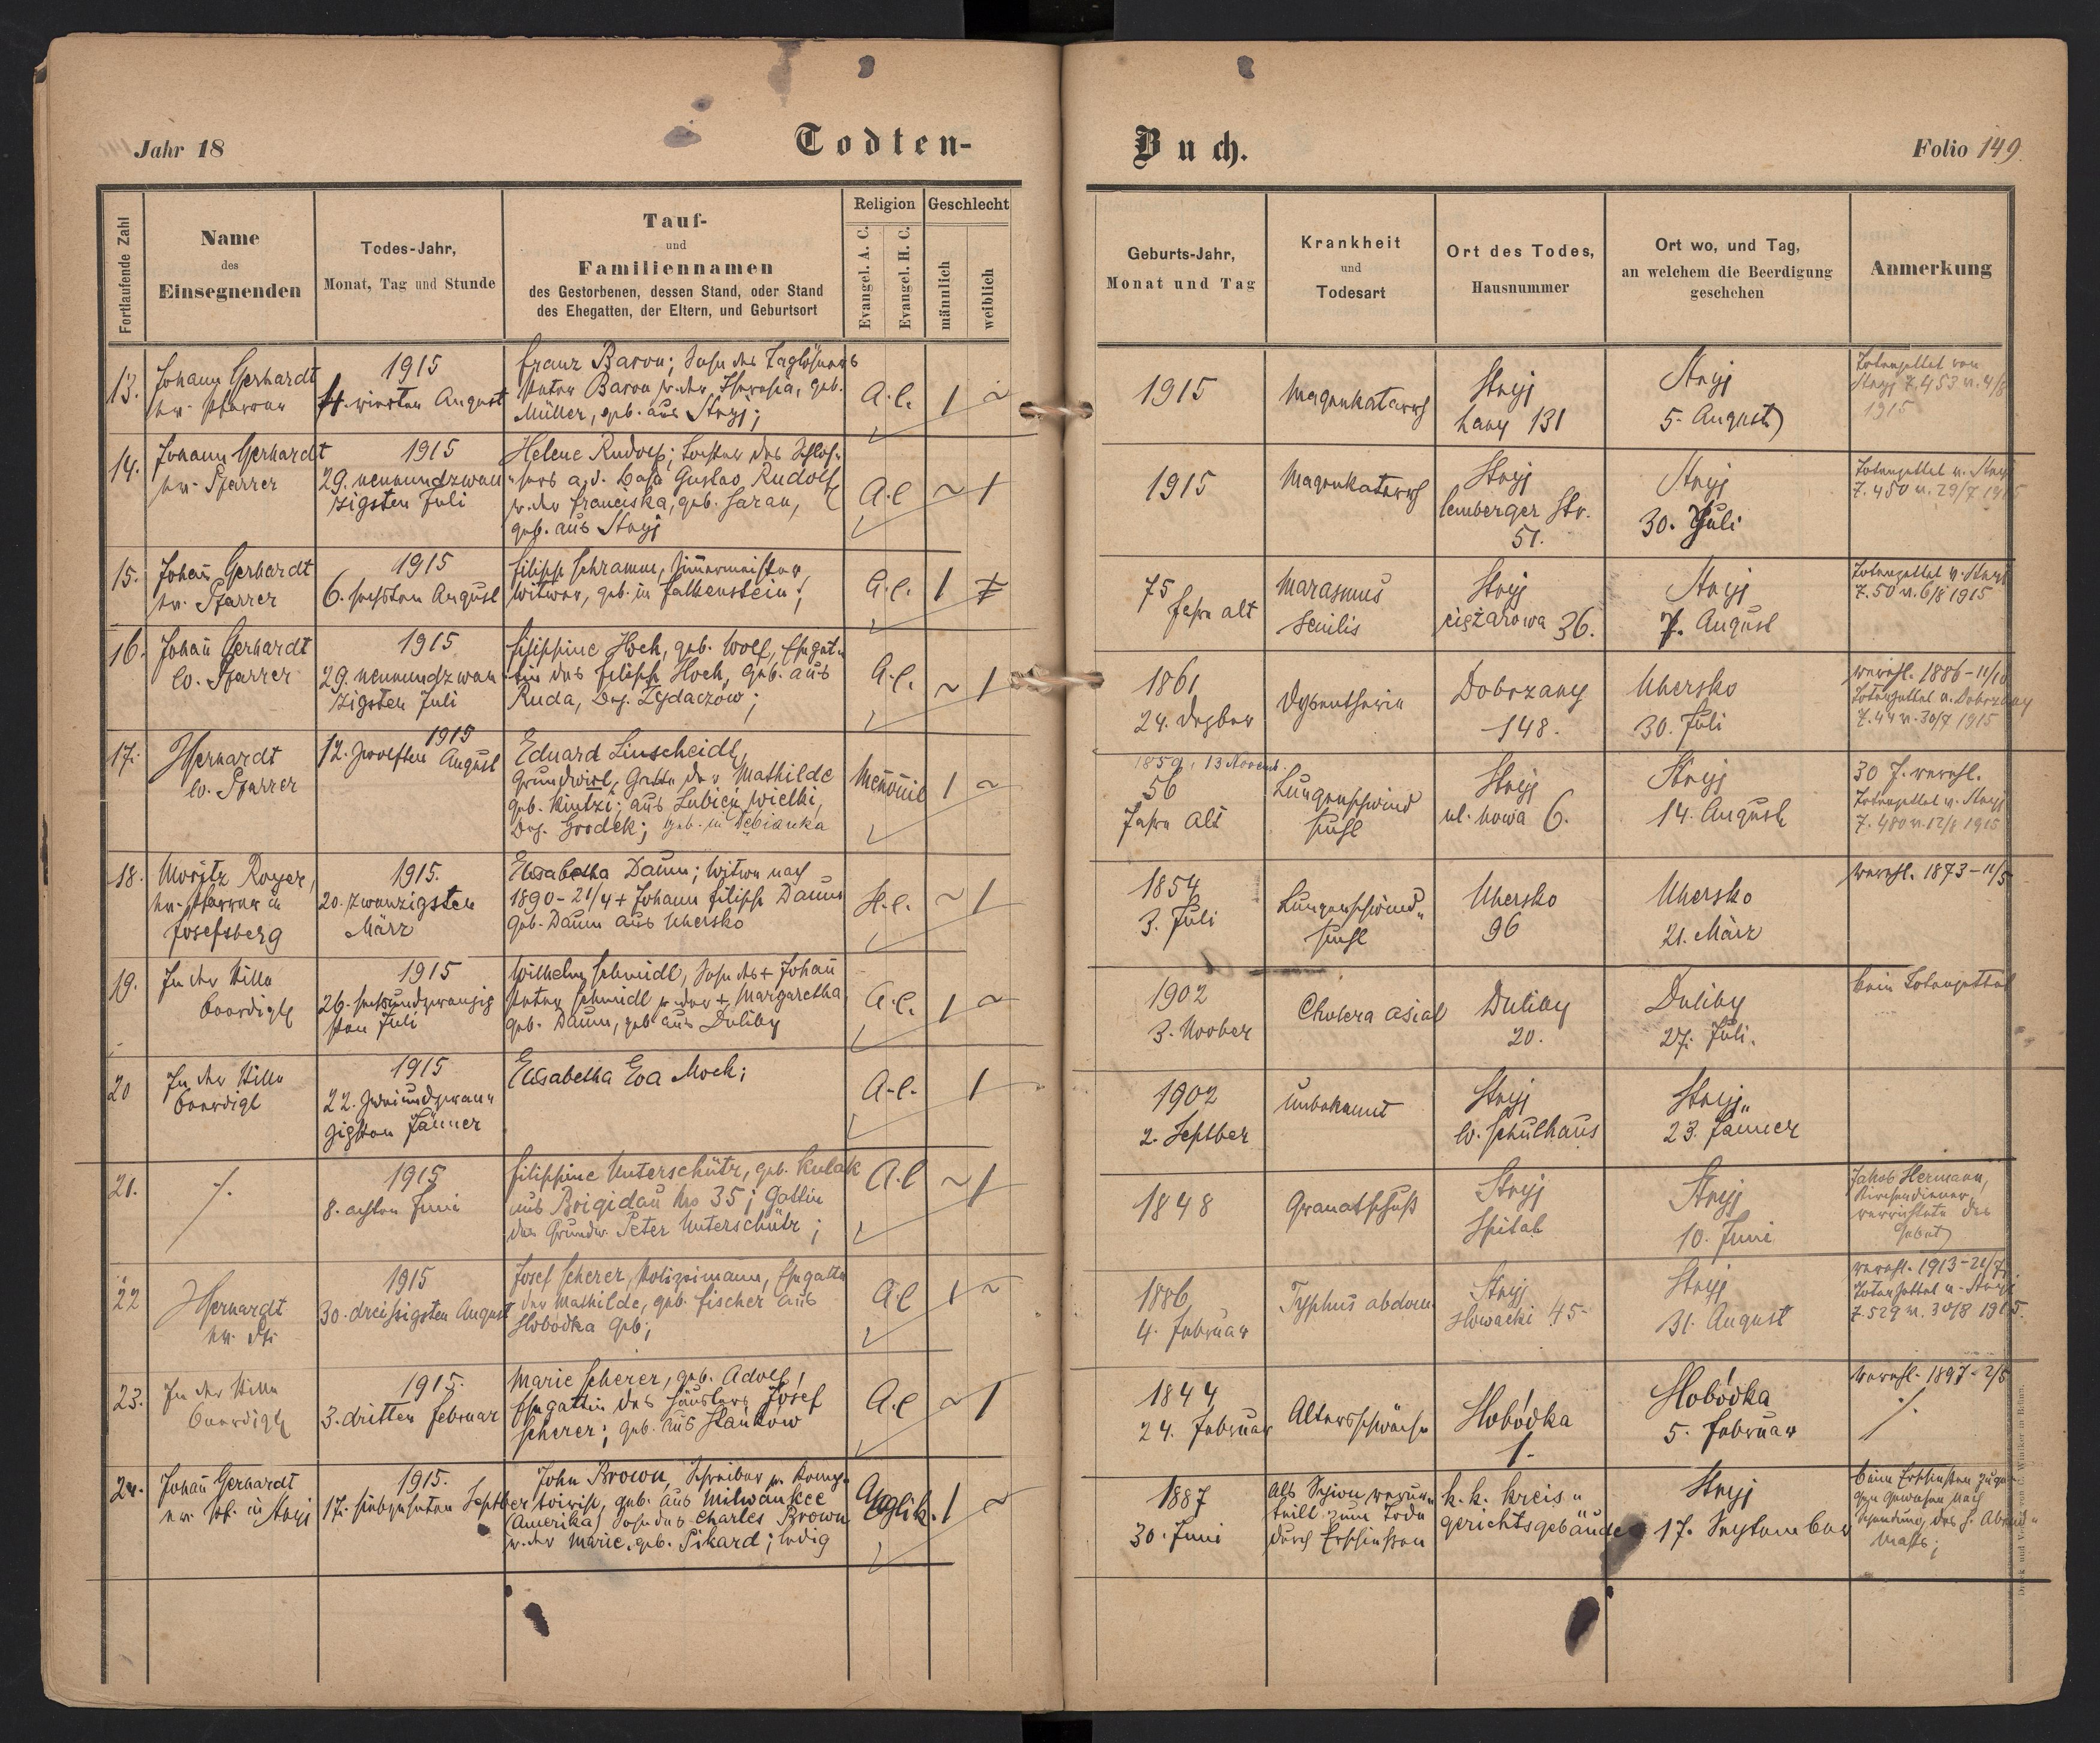 Jahr 18
Todten-
Buch.
Folio 149.
Fortlaufende Zahl
Name
des
Einsegnenden
Todes-Jahr,
Monat, Tag und Stunde
Tauf-
und
Familiennamen
des Gestorbenen, dessen Stand, oder Stand
des Ehegatten, der Eltern, und Geburtsort
Religion
Evangel. A. C.
Evangel. H. C.
Geschlecht
männlich
weiblich
Geburts-Jahr,
Monat und Tag
Krankheit
und
Todesart
Ort des Todes,
Hausnummer
Ort wo, und Tag,
an welchem die Beerdigung
geschehen
Anmerkung
13.
Johann Gerhardt
ev. Pfarrer
1915
4. vierten August
Franz Baron; Sohn des Taglöhners
Peter Baron u. der Theresia, geb.
Müller, geb. aus Stryj;
A.C.
1 ~
1915
Magenkatarrh
Stryj
Lany 131
Stryj
5. August
Totenzettel von
Stryj Z. 453 v. 4/8
1915
14.
Johann Gerhardt
ev. Pfarrer
1915
29. neunundzwan
zigsten Juli
Helene Rudolf; Tochter des Schlos-
sers a. d. Bahn Gustav Rudolf
u. der Franciska, geb. Saran,
geb. aus Stryj
A.C
~ 1
1915
Magenkatarrh
Stryj
Lemberger Str.
51.
Stryj
30. Juli
Totenzettel v. Stryj
Z. 450 v. 29/7 1915
15.
Johañ Gerhardt
ev. Pfarrer
1915
6. sechsten August
Filipp Schramm, Zim̄ermeister
Witwer, geb. in Falkenstein;
A.C.
1
75
Jahre alt
Marasmus
senilis
Stryj
ciężarowa 36.
Stryj
7. August
Totenzettel v. Stryj
Z. 50 v. 6/8 1915
16.
Johañ Gerhardt
ev. Pfarrer
1915
29. neunundzwan
zigsten Juli
Filippine Hoch, geb. Wolf, Ehegat-
tin des Filipp Hoch, geb. aus
Ruda, Bez. Żydaczów;
A.C.
~ 1
1861
24. Dezber
Dysentherie
Dobrzany
148.
Uhersko
30. Juli
verehl. 1886 - 11/10
Totenzettel v. Dobrzany
Z. 44 v. 30/7 1915
17.
JGerhardt
ev. Pfarrer
1915
12. zwölften August
Eduard Linscheidt,
Grundwirt, Gatte der Mathilde
geb. Kintzi; aus Lubień wielki,
Bez. Gródek; geb. in Dębianka
Meñonit
1 ~
1859, 13 Novemb.
56
Jahre alt
Lungenschwind
sucht
Stryj
ul. nowa 6.
Stryj
14. August
30 J. verehl.
Totenzettel v. Stryj
Z. 480 v. 12/8 1915
18.
Moritz Royer,
ev. Pfarrer in
Josefsberg
1915.
20. zwanzigsten
März
Elisabetha Daum; Witwe nach
1890 - 21/4 + Johann Filipp Daum
geb. Daum aus Uhersko
H.C.
~ 1
1854
3. Juli
Lungenschwind-
sucht
Uhersko
96
Uhersko
21. März
verehl. 1873 - 11/5
19.
In der Stille
beerdigt
1915
26. sechsundzwanzig
sten Juli
Wilhelm Schmidt, Sohn des + Johañ
Peter Schmidt u. der + Margaretha,
geb. Daum, geb. aus Duliby
A.C.
1 ~
1902
3. Novber
Cholera asiat
Duliby
20.
Duliby
27. Juli.
kein Totenzettel
20
In der Stille
beerdigt
1915
22. zweiundzwan-
zigsten Jänner
Elisabetha Eva Mock;
A.C.
1
1902
2. Septber
Unbekannt
Stryj
ev. Schulhaus
Stryj
23. Jänner
21.
1915
8. achten Juni
Filippine Unterschütz, geb. Kulak
aus Brigidau Nro 35; Gattin
des Grundw. Peter Unterschütz;
A.C
~ 1
1848
Granatschuss
Stryj
Spital
Stryj
10. Juni
Jakob Hermann,
Kirchendiener,
verrichtete das
Gebet
22
JGerhardt
ev. Pf.
1915
30. dreissigsten August
Josef Scherer, Polizeimann, Ehegatte
der Mathilde, geb. Fischer aus
Słobodka geb;
A.C
1 ~
1886
4. Februar
Typhus abdom.
Stryj
Słowacki 45.
Stryj
31. August
verehl. 1913 - 21/7
Totenzettel v. Stryj
Z. 529 v. 30/8 1915.
23.
In der Stille
beerdigt
1915.
3. dritten Februar
Marie Scherer, geb. Adolf,
Ehegattin des Häuslers Josef
Scherer; geb. aus Stańków
A.C
~ 1
1844
24. Februar
Altersschwäche
Słobódka
1.
Słobódka
5. Februar
verehl. 1897 - 2/5
24.
Johañ Gerhardt
ev. Pf. in Stryj
1915.
17. siebzehnten Septber
John Brown, Schreiber u.
geb. aus Milwaukee
(Amerika) Sohn des Charles Brown
u. der Marie, geb. Pikard; ledig
Anglik.
1 ~
1887
30. Juni
Als Spion verur-
teilt zum Tode
durch Erschiessen
k. k. Kreis-
gerichtsgebäude
Stryj
17. September
beim Erschiessen zuge-
gen gewesen nach
Spendung des h. Abend-
mahls;